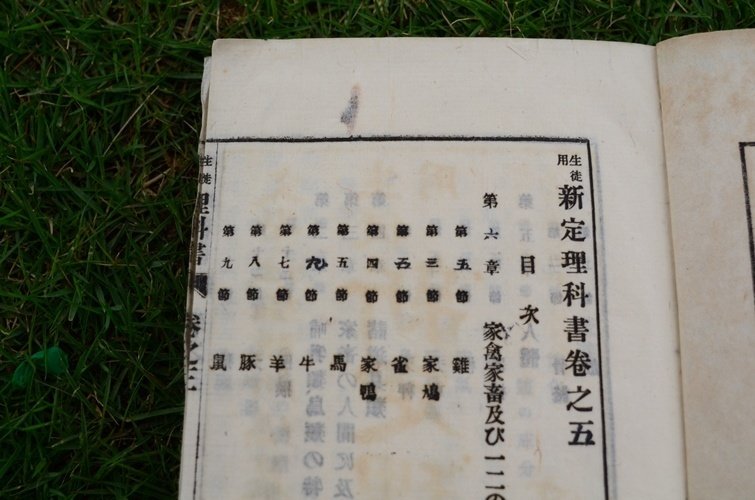 生徒用 新定理科書卷之五
目次
第六章 家禽家畜及び一二の
第五節 雞
第三節 家鳩
第 節 雀
第四節 家鴨
第五節 馬
第九節 牛
第七節 羊
第八節 豚
第九節 鼠
生徒 理科書 卷之